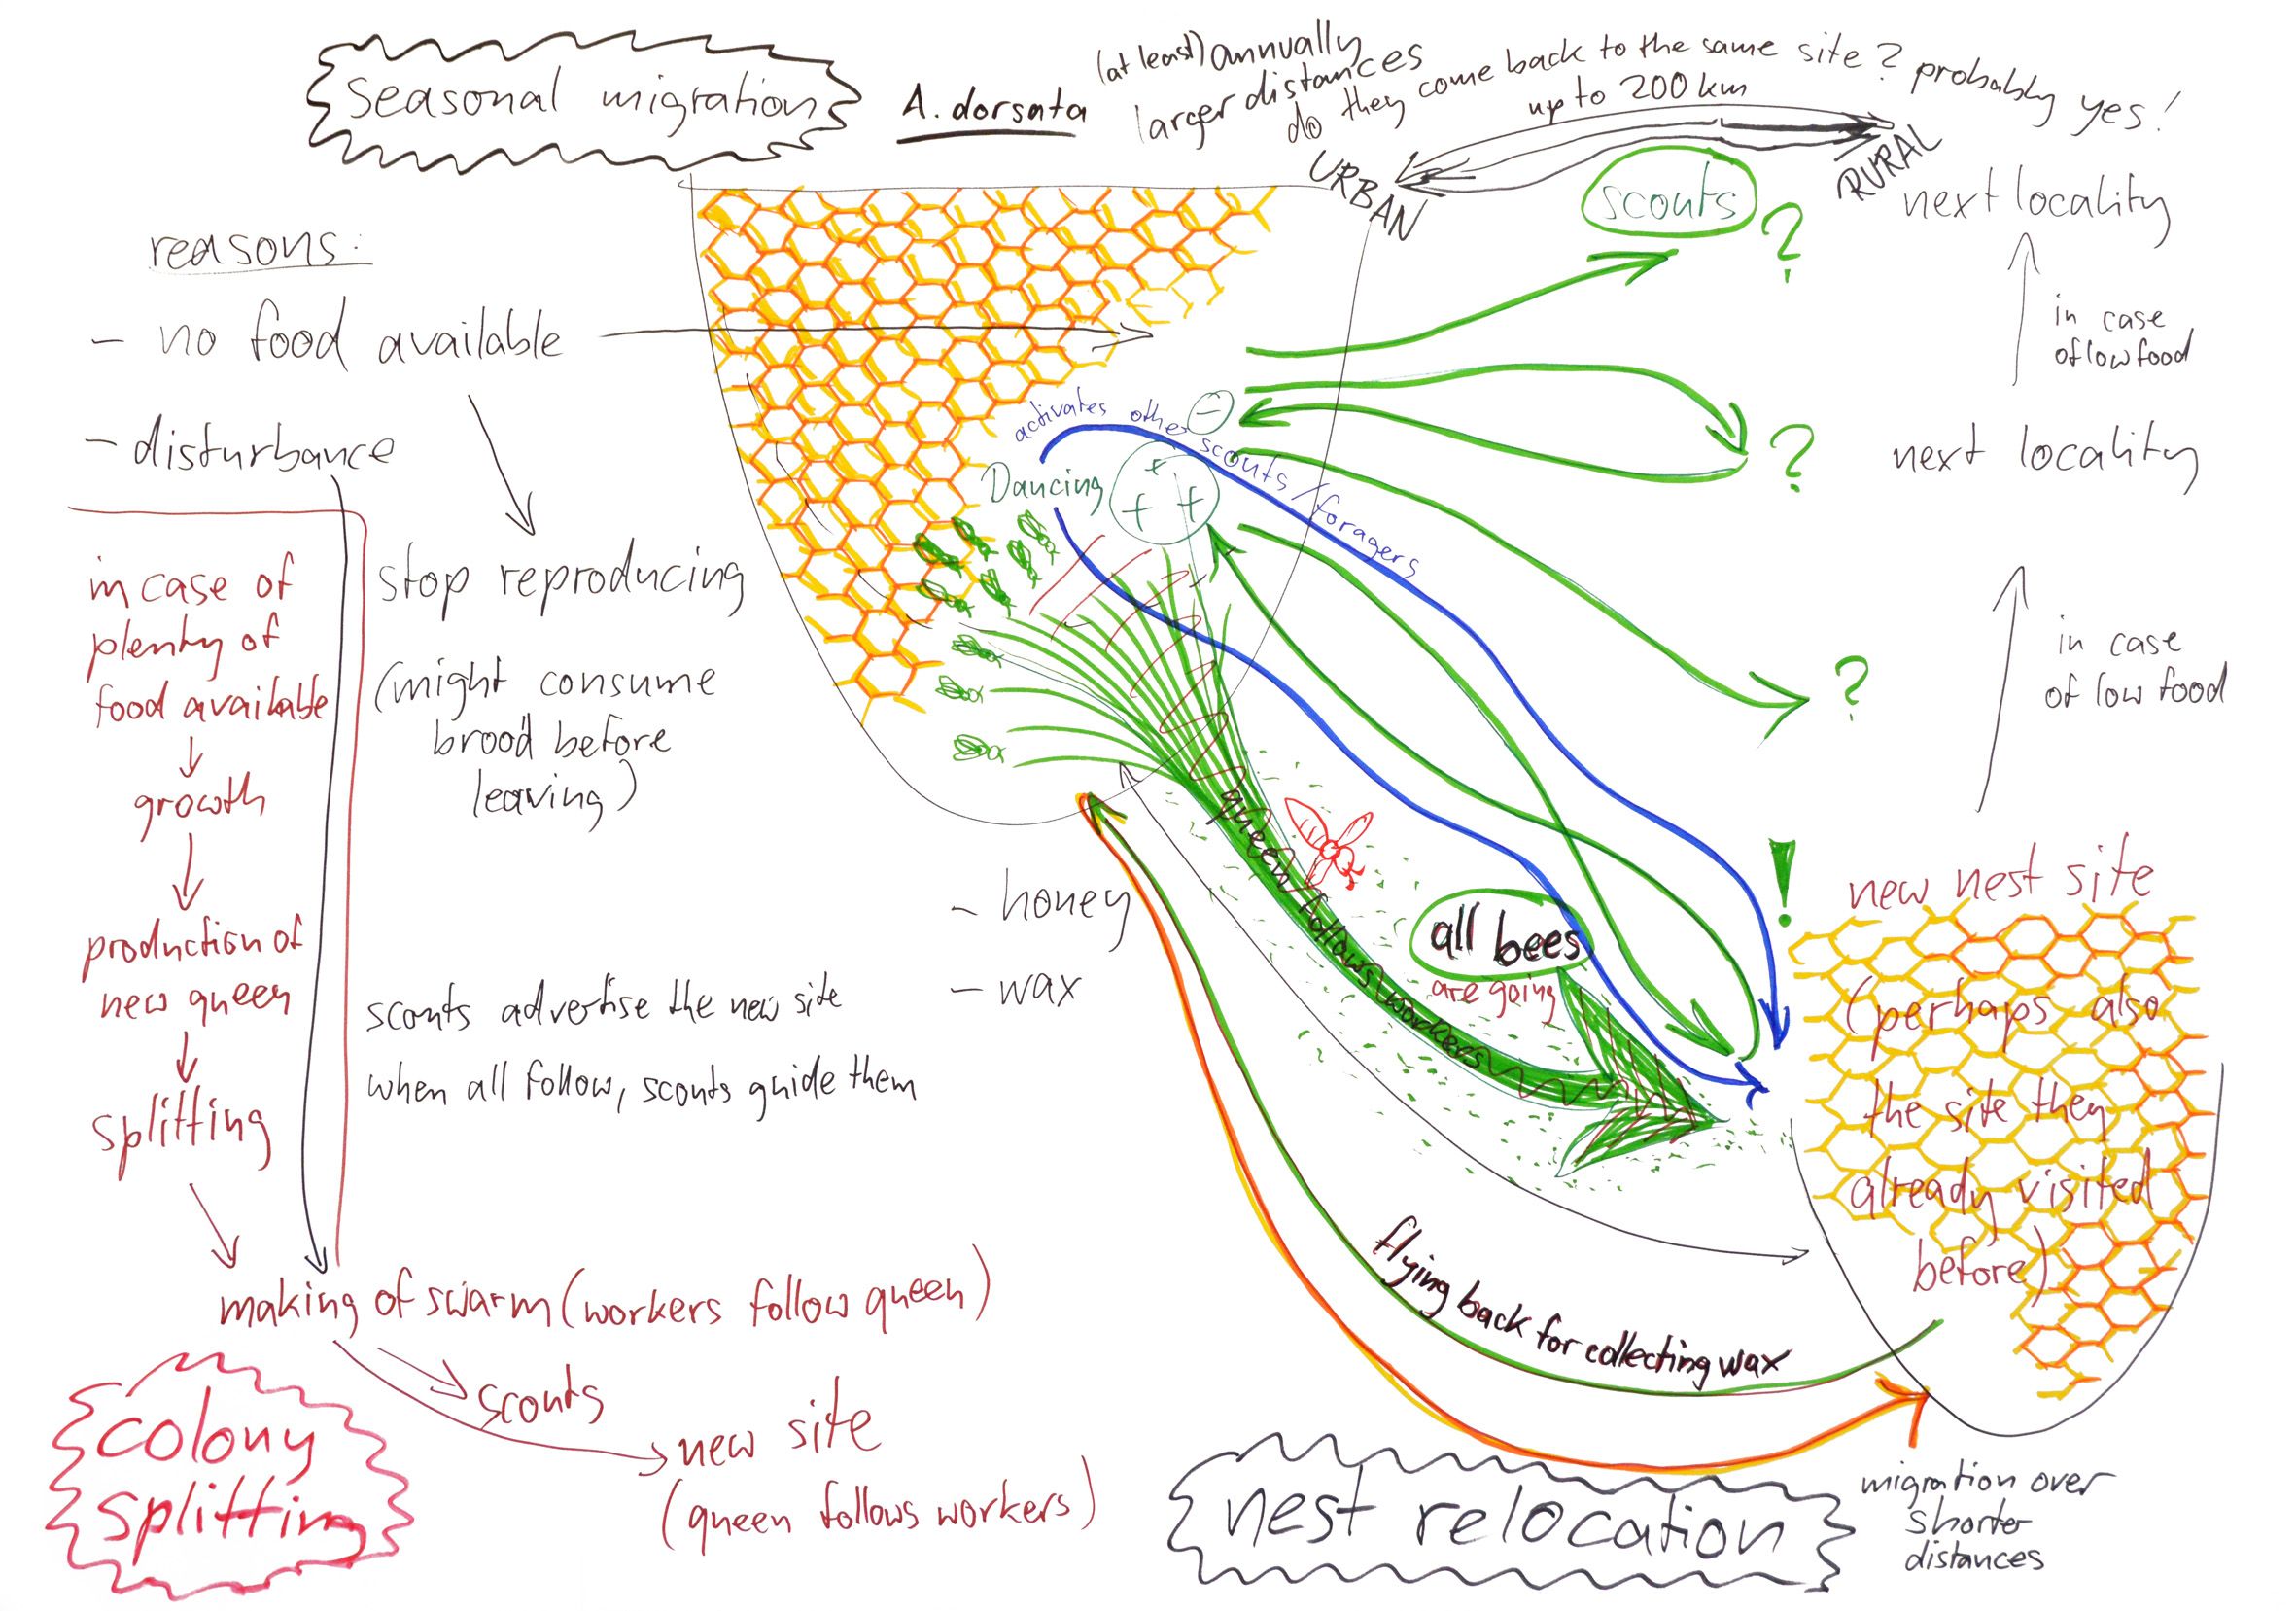 seasonal migration
A. dorsata
(at least) annually
larger distances
do they come back to the same site? probably yes!
up to 200 km
URBAN
RURAL
scouts
?
next locality
in case
of low food
?
next locality
in case
of low food
?
reasons:
- no food available
- disturbance
stop reproducing
(might consume
brood before
leaving)
in case of
plenty of
food available
growth
production of
new queen
splitting
making of swarm (workers follow queen)
scouts
new site
(queen follows workers)
colony
splitting
scouts advertise the new site
when all follow, scouts guide them
- honey
- wax
activates other scouts / foragers
Dancing
-
+
+ +
queen follows workers
all bees
are going
!
new nest site
(perhaps also
the site they
already visited
before)
flying back for collecting wax
nest relocation
migration over
shorter
distances